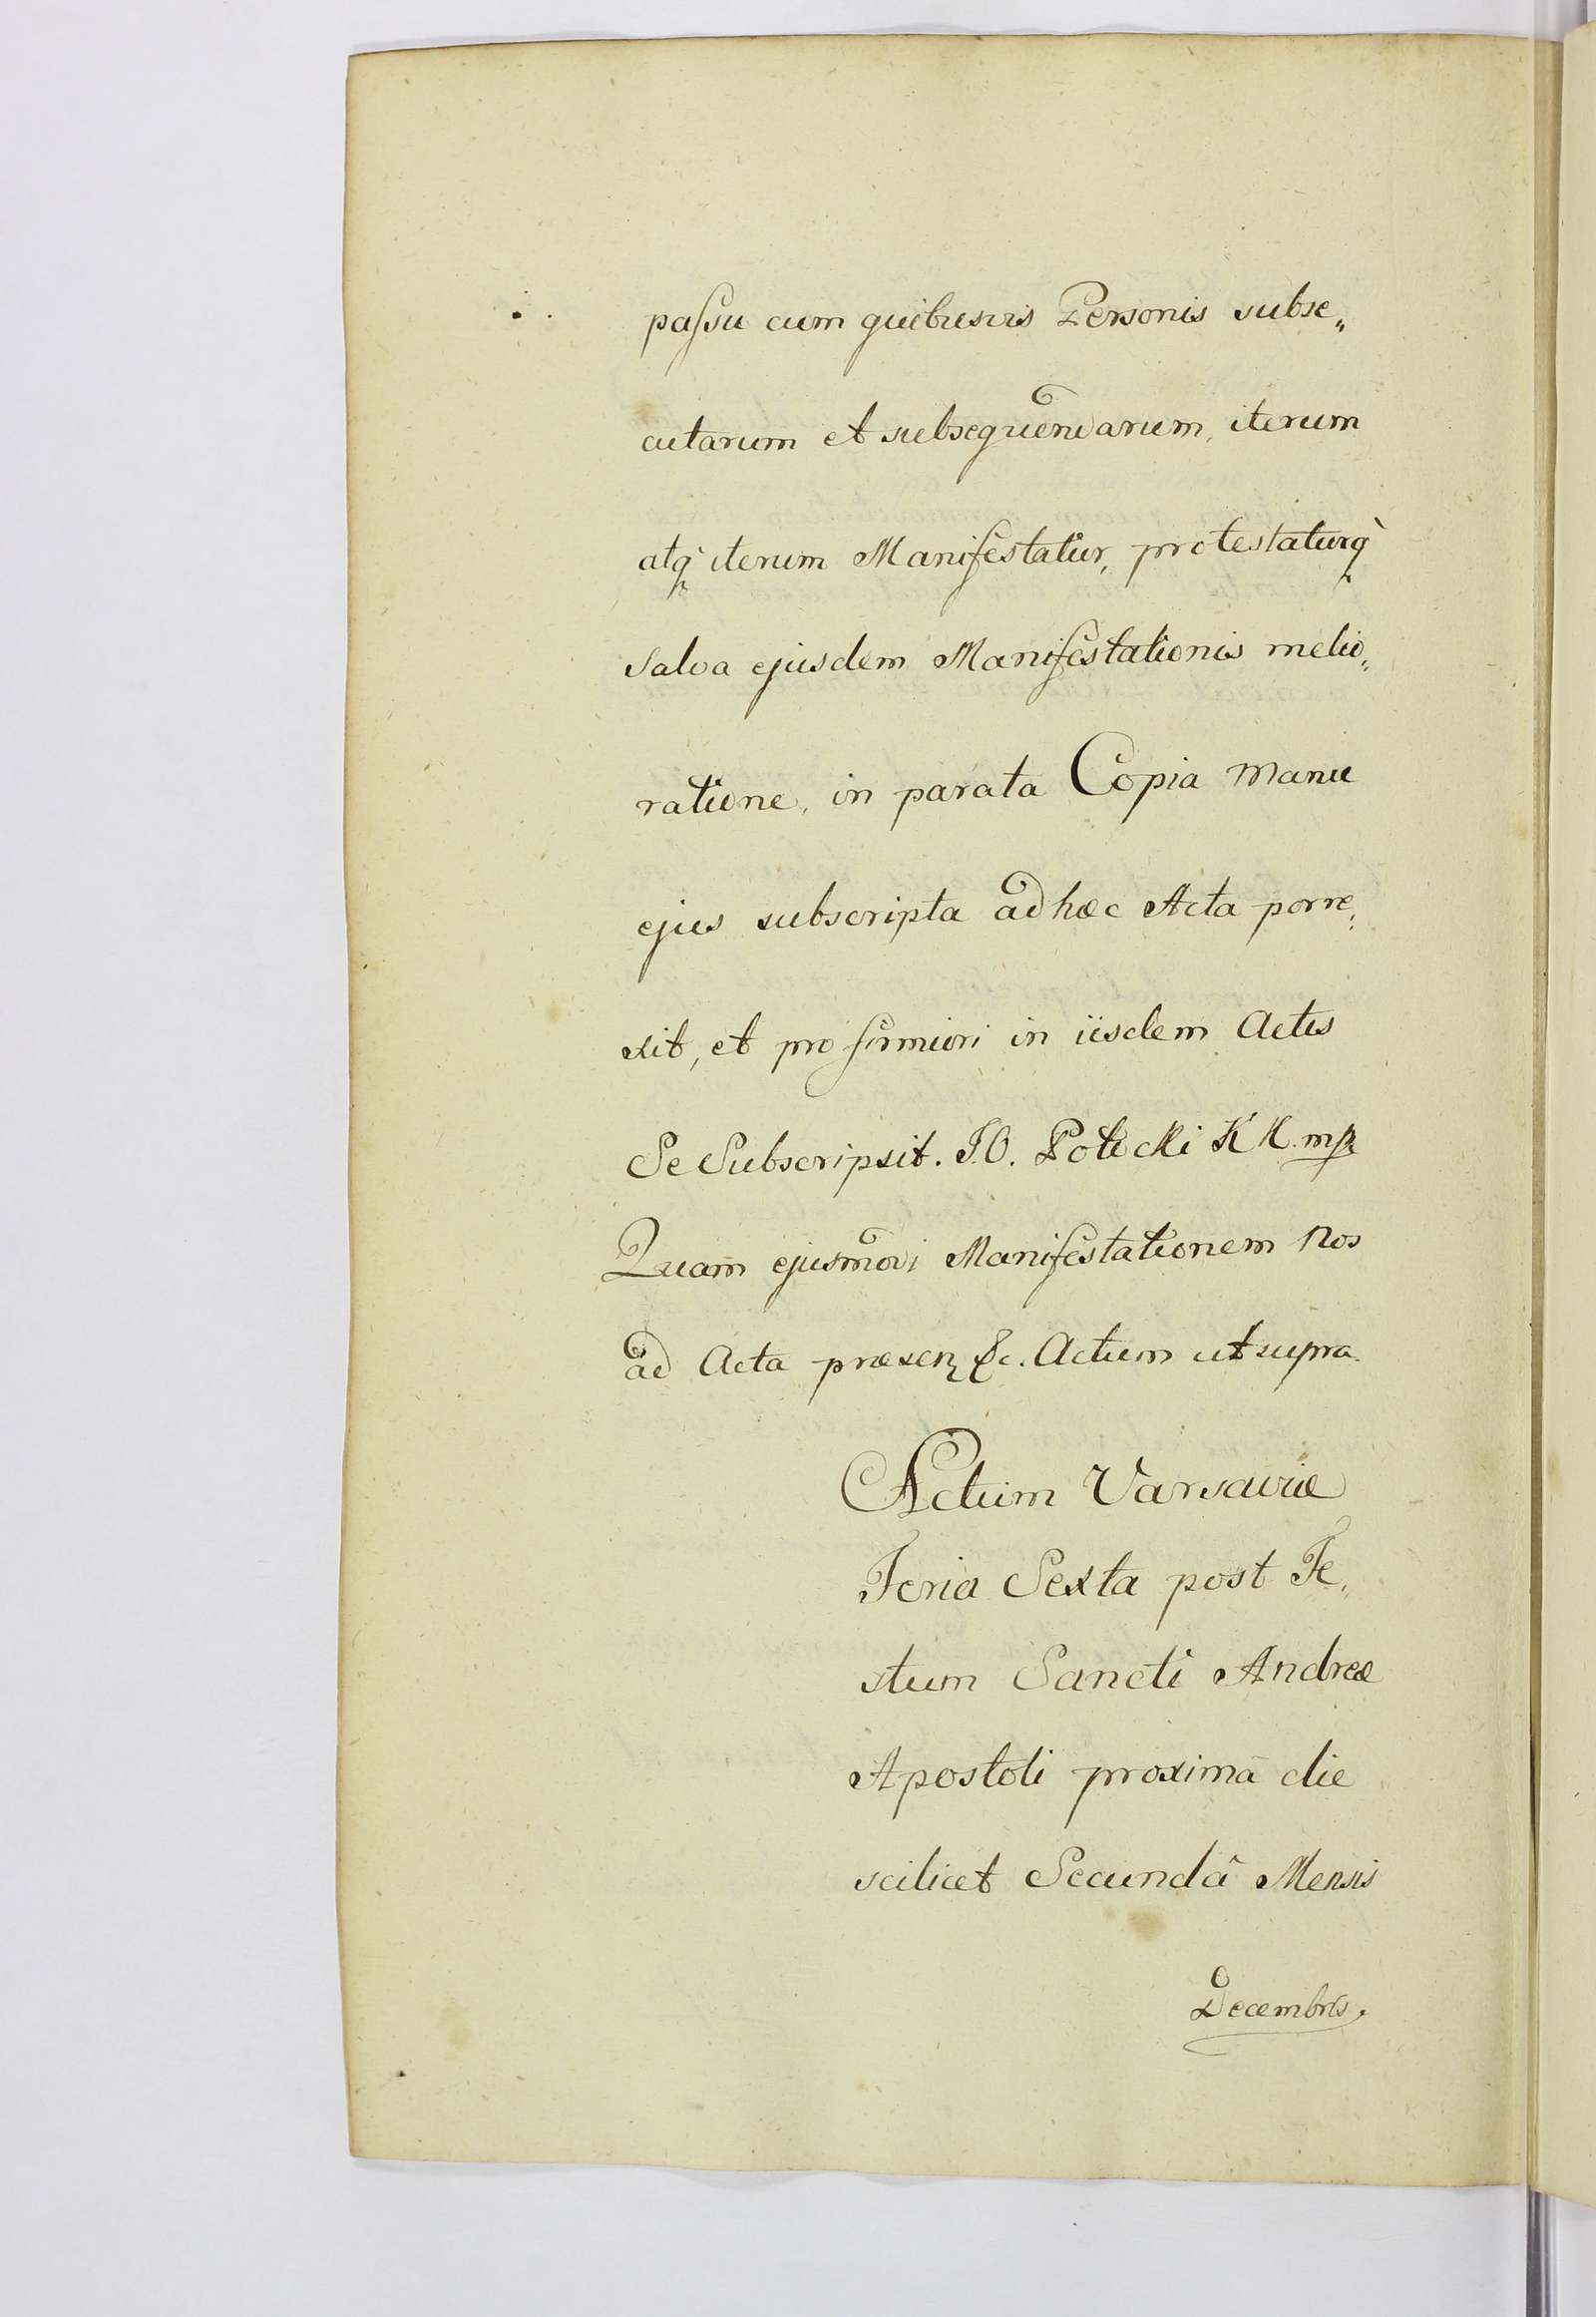 paſsu cum quibusvis Personis subse„
cutarum et subsequendarum, iterum
atq̀ iterum Manifestatur, protestaturq̀
salva ejusdem Manifestationis melio„
ratione, in parata Copia Manu
ejus subscripta ad hæc Acta porre„
xit, et pro firmiori in iisdem Actis
Se Subscripsit. I.O. Potocki K K mp
Quam ejusmodi Manifestationem Nos
ad Acta præsen &c. Actum ut supra.
Actum Varsaviæ
Feria Sexta post Fe„
stum Sancti Andreæ
Apostoli proximâ die
scilicet Secundâ Mensis
Decembris.